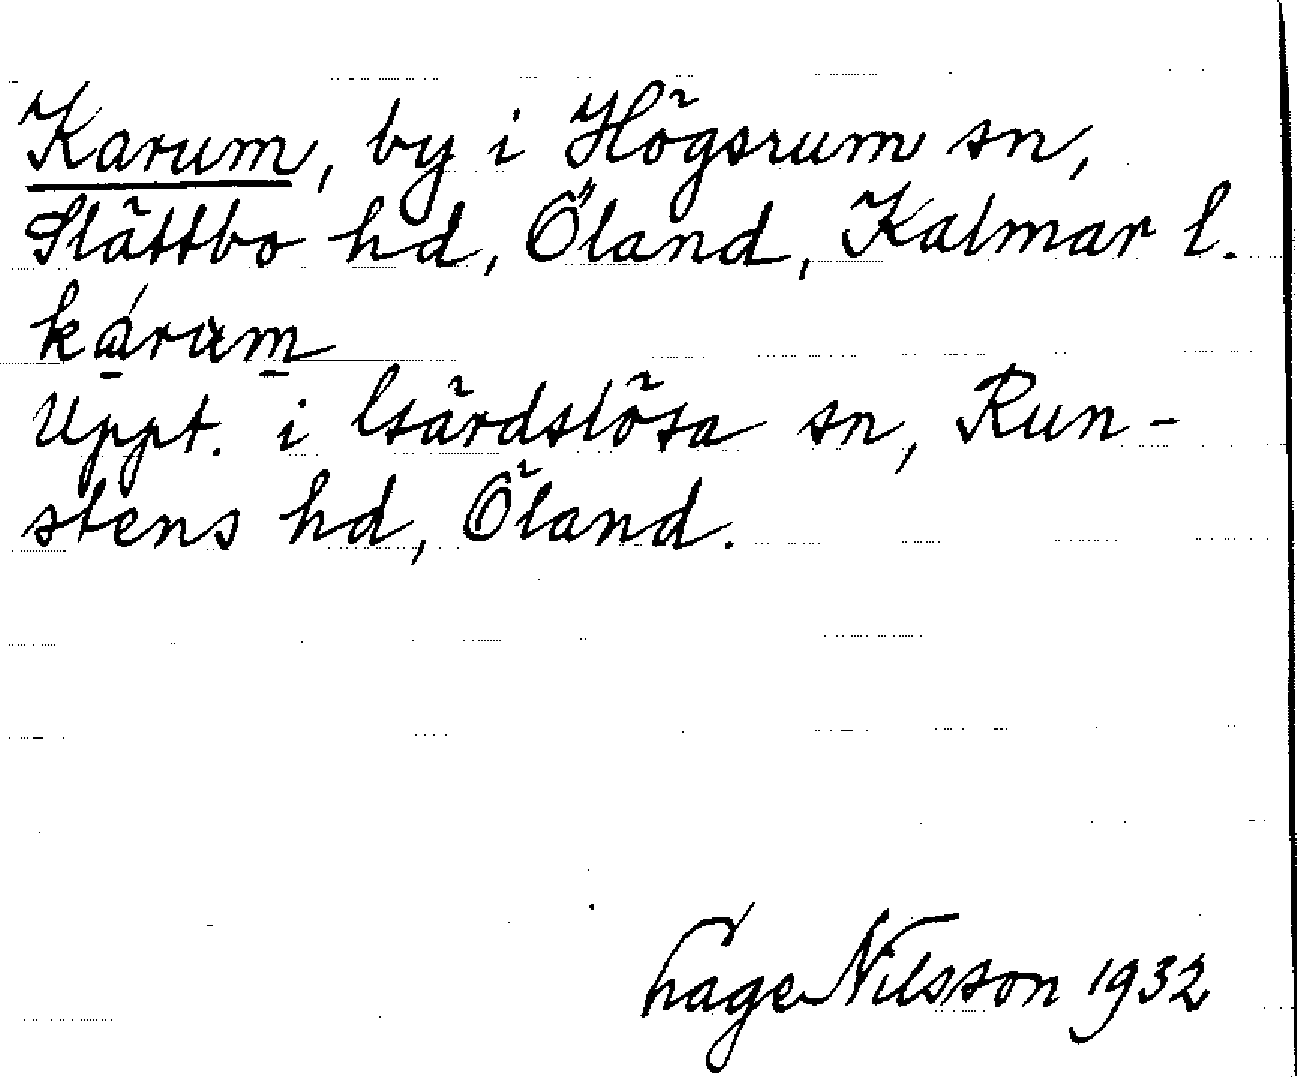 Karum, by i Högsrum sn,
Slättbo hd, Öland, Kalmar l.
kárum
Uppt. i Gärdslösa sn, Run-
stens hd, Öland.
Hage Nilsson 1932